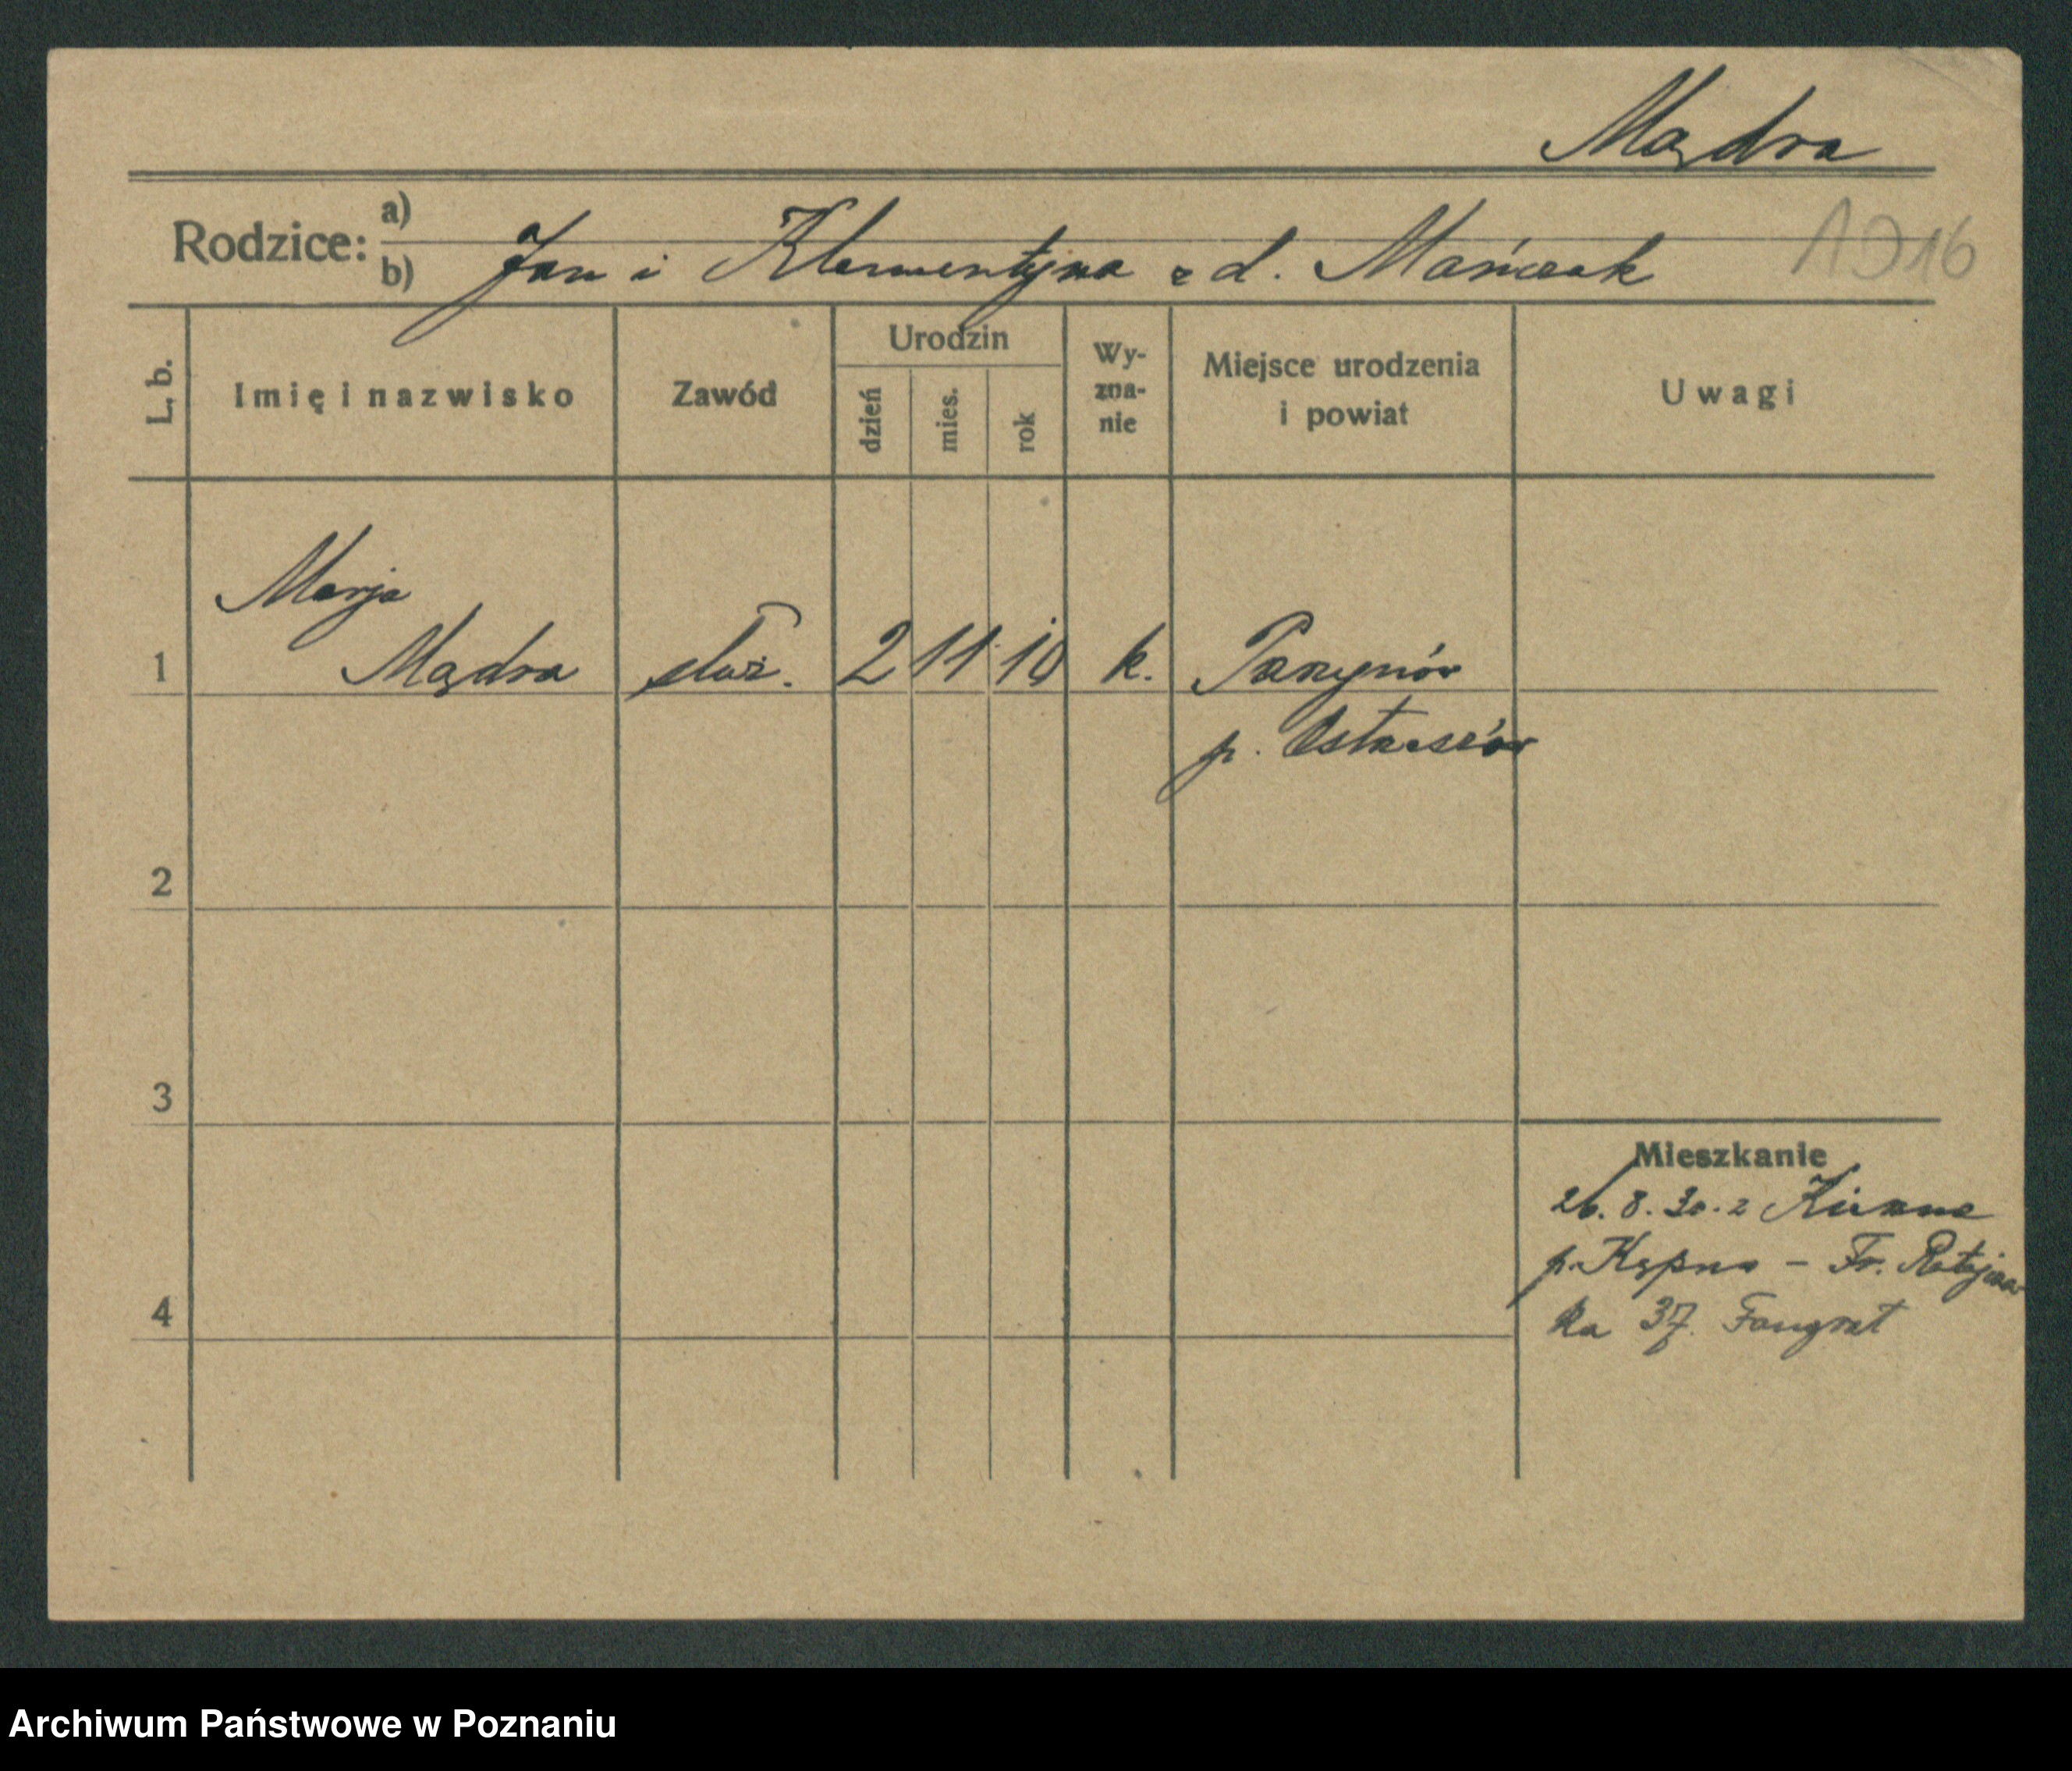 Mądra
Rodzice: a)
b) Jan i Klementyna z d. Mańczak
1916
L. b.
Imię i nazwisko
Zawód
Urodzin
dzień
mies.
rok
Wy-
zna-
nie
Miejsce urodzenia
i powiat
Uwagi
Marja
1 Mądra służ. 2 11 10 k. Parzynów
p. Ostrzeszów
2
3
Mieszkanie
26. 8. 30. z
p. Kępno – Fr. Ratajcza
ka 37.
4
Archiwum Państwowe w Poznaniu